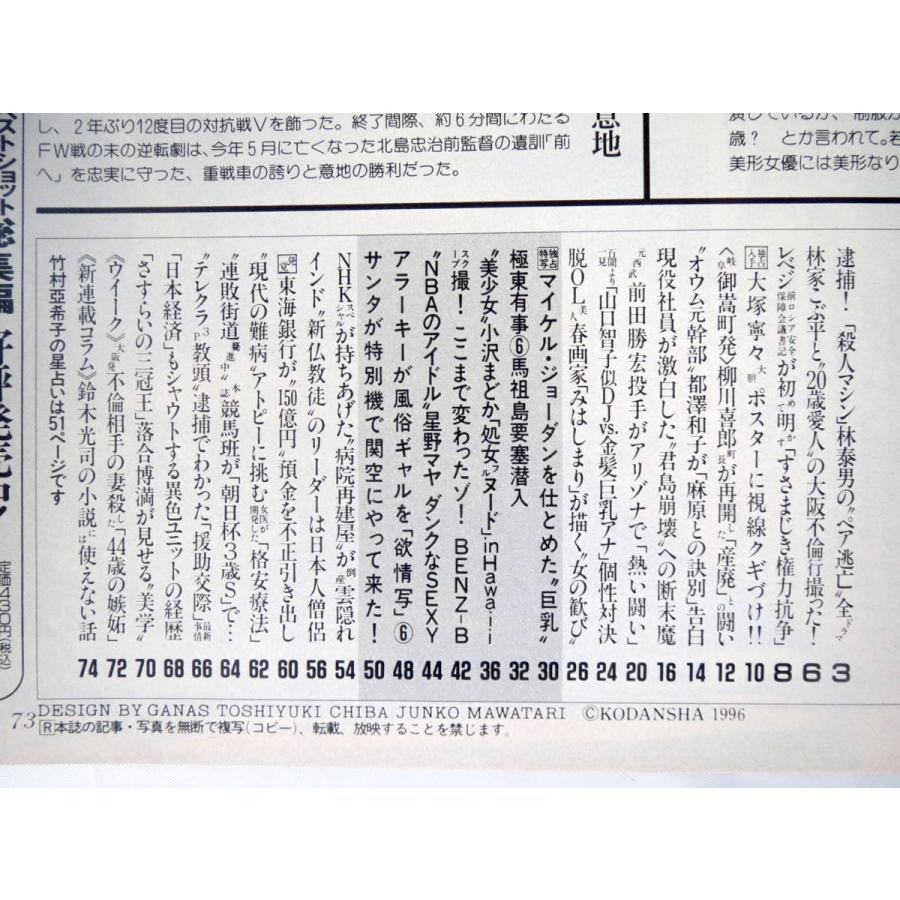 し、2年ぶり12度目の対抗戦Vを飾った。終了間際、約6分間にわたる
FW戦の末の逆転劇は、今年5月に亡くなった北島忠治前監督の遺訓「前
へ」を忠実に守った、重戦車の誇りと意地の勝利だった。
意地
歳? とか言われて。若
美形女優には美形なり
逮捕!「殺人マシン」林泰男の"ペア逃亡"全ドラマ 3
林家こぶ平と"20歳愛人"の大阪不倫行撮った! 6
レベジ前ロシア安全保障会議書記が初めて明かす「すさまじき権力抗争」 8
独占入手 大塚寧々大胆ポスターに視線クギづけ!! 10
〈岐阜御嵩町発〉柳川喜郎町長が再開した"産廃"との闘い 12
"オウム元幹部"都澤和子が「麻原との訣別」告白 14
現役社員が激白した"君島崩壊"への断末魔 16
元西武 前田勝宏投手がアリゾナで「熱い闘い」 20
百聞より一見「山口智子似DJvs.金髪巨乳アナ」個性対決 24
脱OL美人春画家〝みはしまり〟が描く"女の歓び" 26
独占特写 マイケル・ジョーダンを仕とめた"巨乳" 30
極東有事⑥馬祖島要塞潜入 32
"美少女"小沢まどか「処女フルヌード」in Hawaii 36
スクープ撮!ここまで変わったゾ!BENZ-B 42
"NBAのアイドル"星野マヤ ダンクなSEXY 44
アラーキーが風俗ギャルを「欲情写」⑥ 48
サンタが特別機で関空にやって来た! 50
NHKスペシャルが持ちあげた"病院再建屋"が倒産雲隠れ 54
インド"新仏教徒"のリーダーは日本人僧侶 56
発覚 東海銀行が"150億円"預金を不正引き出し 60
"現代の難病"アトピーに挑む女医が開発した「格安療法」 62
"連敗街道驀進中"本誌競馬班が「朝日杯3歳S」で… 64
"テレクラ3P教頭"逮捕でわかった"援助交際"最新事情 66
「日本経済」もシャウトする異色ユニットの経歴 68
"さすらいの三冠王"落合博満が見せる"美学" 70
〈ウイーク〉大阪発不倫相手の妻殺した「44歳の嫉妬」 72
《新連載コラム》鈴木光司の小説には使えない話 74
竹村亞希子の星占いは51ページです
ベストショット総集編 好評発売中!
定価430円(税込)
73 DESIGN BY GANAS TOSHIYUKI CHIBA JUNKO MAWATARI ©KODANSHA 1996
R本誌の記事・写真を無断で複写(コピー)、転載、放映することを禁じます。